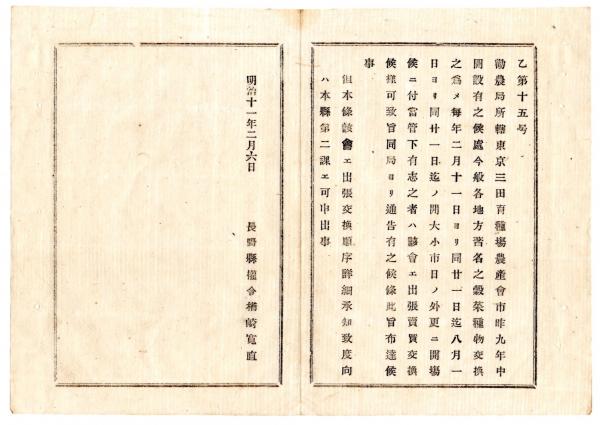 乙第十五号
勸農局所轄東京三田育種場農產會市昨九年中
開設有之候處今般各地方著名之穀菜種物交換
之爲メ每年二月十一日ヨリ同廿一日迄八月一
日ヨリ同廿一日迄ノ間大小市日ノ外更ニ開場
候ニ付當管下有志之者ハ該會エ出張賣買交換
候樣可致旨同局ヨリ通告有之候條此旨布達候
事
但本條該會エ出張交換順序詳細承知致度向
ハ本縣第二課エ可申出事
明治十一年二月六日
長野縣權令楢崎寬直